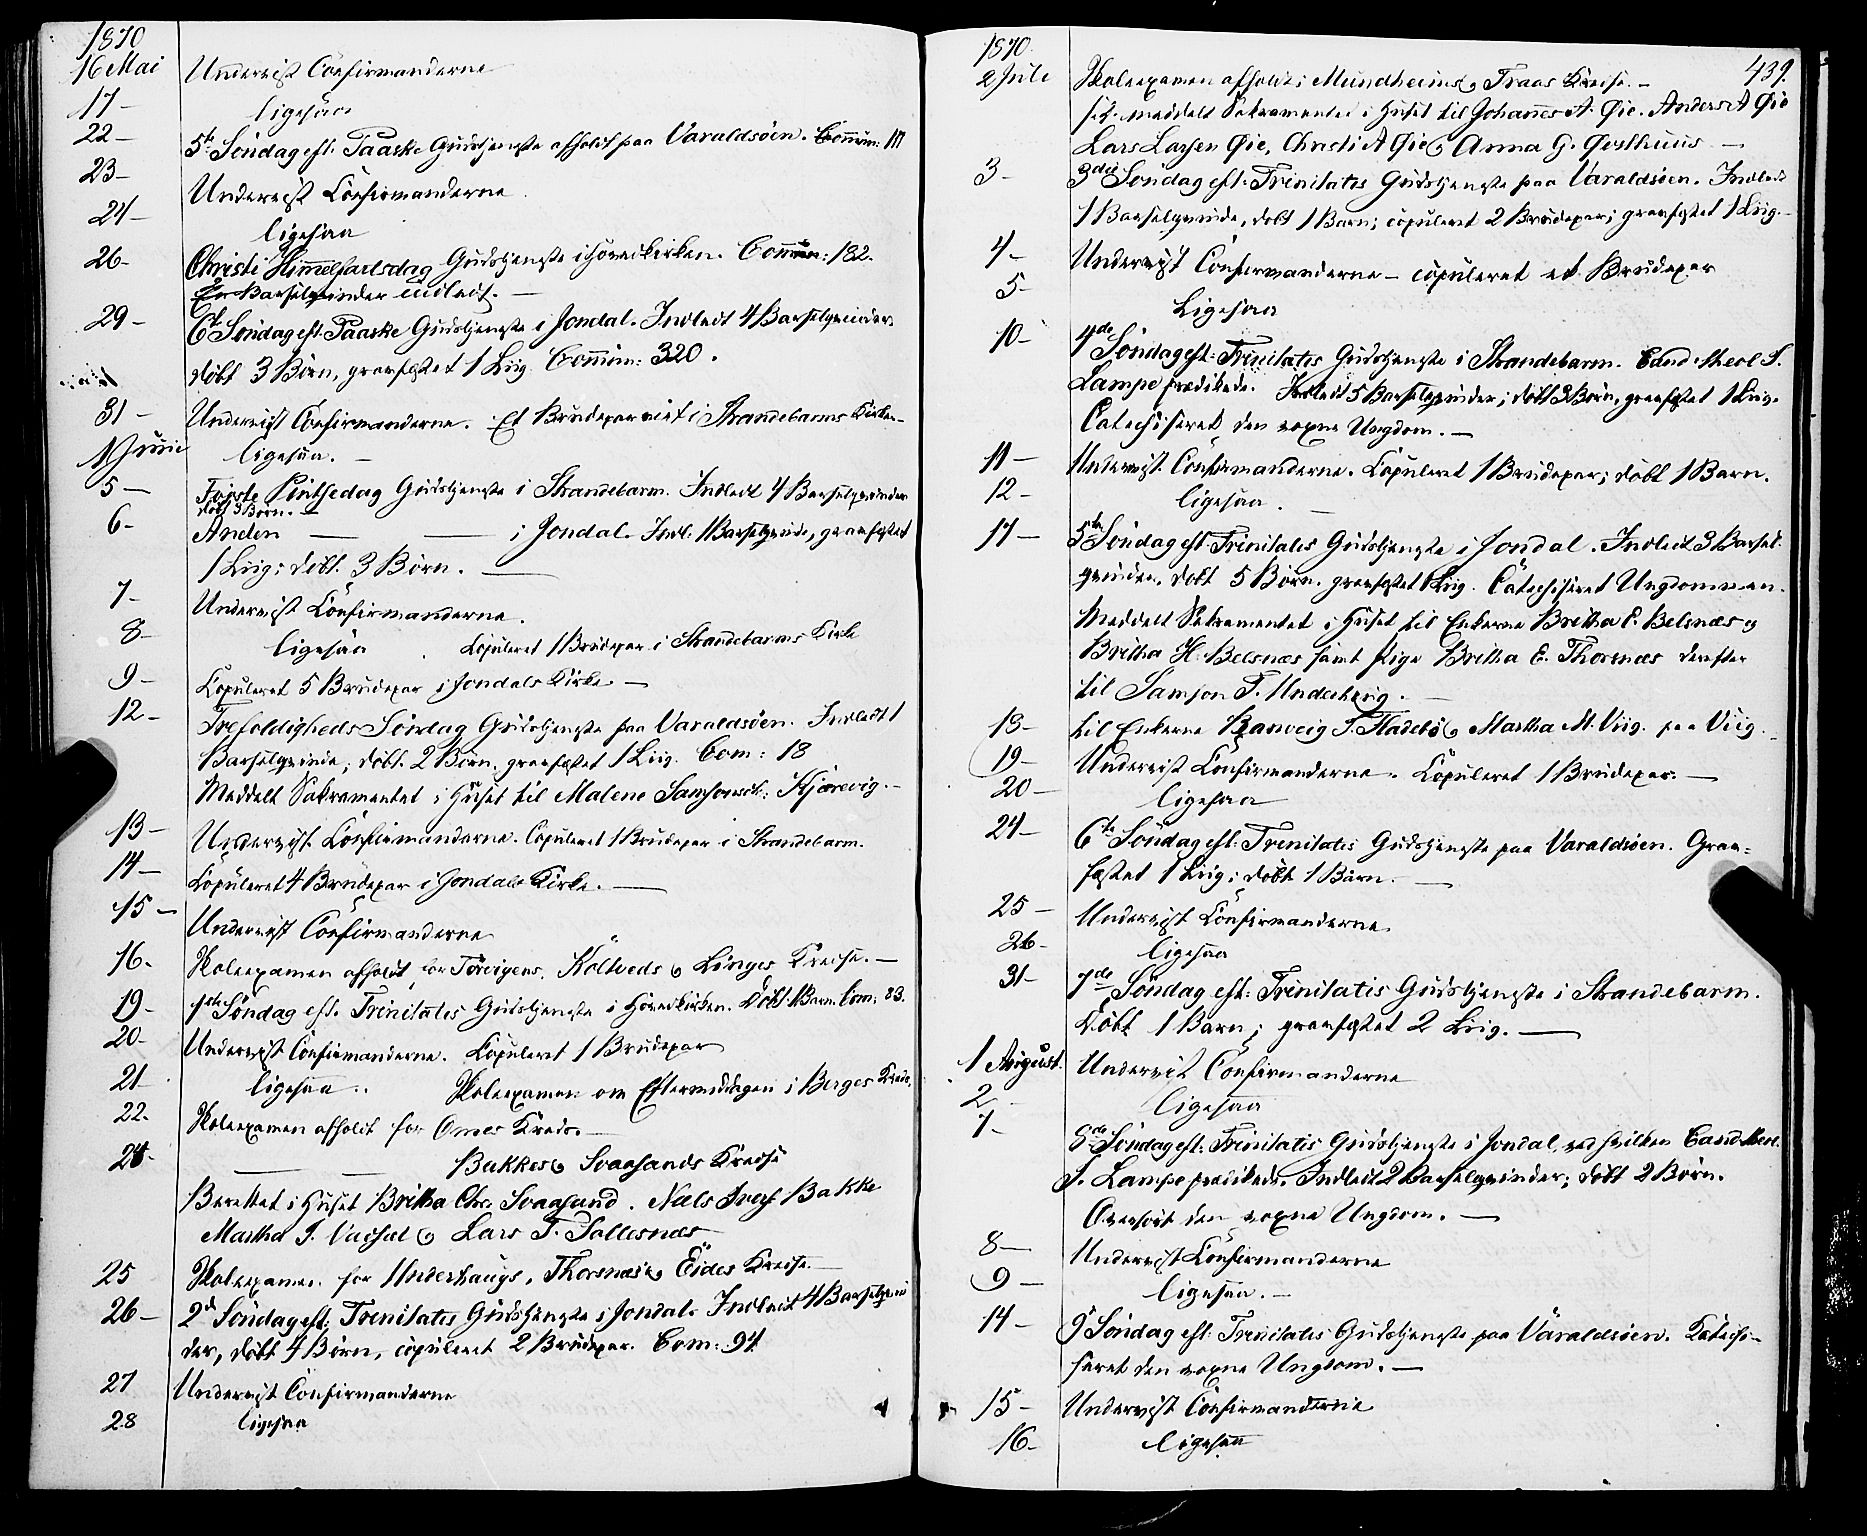 1870
16 Mai Underviist Confirmanderne
17 — ligesaa
22 — 5te Søndag eft. Paaske Gudstjeneste afholdt paa Varaldsøen. Commun: 111
23 — Underviist Confirmanderne.
24 — ligesaa
26 — Christi Himmelfartsdag Gudstjeneste i Hovedkirken. Commun: 182.
Barselqvinder indledt. —
29 — 6te Søndag eft. Paaske Gudstjeneste i Jondal. Indledt 4 Barselqvinder
døbt 3 Børn, graefæstet 1 Liig. Commun: 320.
31 — Underviist Confirmanderne. Et Brudepar viet i Strandebarms Kirke. —
1 Juni ligesaa. —
5 — Første Pintsedag Gudstjeneste i Strandebarm. Indledt 4 Barselqvinder
døbt 3 Børn. —
6 — Anden — — i Jondal. Indl: 1 Barselqvinde, graefæstet
1 Liig; døbt. 3 Børn. —
7 — Underviist Confirmanderne.
8 — ligesaa. Copuleret 1 Brudepar i Strandebarms Kirke
9 — Copuleret 5 Brudepar i Jondals Kirke —
12 — Trefoldigheds Søndag Gudstjeneste paa Varaldsøen. Indledt 1
Barselqvinde; døbt. 2 Børn, graefæstet 1 Liig. Com: 18
Meddelt Sakramentet i Huset til Malene Samsonsd: Kjærevig. —
13 — Underviist Confirmanderne. Copuleret 1 Brudepar i Strandebarm.
14 — Copuleret 4 Brudepar i Jondals Kirke. —
15 — Underviist Confirmanderne
16. Skoleexamen afholdt for Torvigens, Koltveds og Linges Kredse. —
19 — 1ste Søndag eft. Trinitatis Gudstjeneste i Hovedkirken. Døbt 1 Barn. Com: 83.
20 — Underviist Confirmanderne. Copuleret 1 Brudepar
21 ligesaa. Skoleexamen om Eftermiddagen i Berges Kreds.
22. Skoleexamen afholdt for Omes Kreds. —
24 — — Bakkes og Svaasands Kredse
Berettet i Huset Britha Chr. Svaasand. Niels Bakke
Martha J. og Lars T. Sollesnæs
25 Skoleexamen for Underhaugs, Thorsnæs og Eides Kredse. —
26 — 2d Søndag eft: Trinitatis Gudstjeneste i Jondal. Indledt 4 Barselqvin
der, døbt 4 Børn, copuleret 2 Brudepar. Com: 94
27 Underviist Confirmanderne
28 ligesaa
439.
1870.
2 Juli Skoleexamen afholdt i Mundheims og Traas Kredse. —
meddelt Sakramentet i Huset til Johannes A. Øie. Anders A Øie
Lars Larsen Øie, Christi A Øie og Anna G. Østhuus —
3 — 3die Søndag eft: Trinitatis Gudstjeneste paa Varaldsøen. Indledt
1 Barselqvinde, døbt 1 Barn; copuleret 2 Brudepar; graefæstet 1 Liig. —
4 — Underviist Confirmanderne — copuleret et Brudepar
5 — Ligesaa
10 — 4de Søndag eft: Trinitatis Gudstjeneste i Strandebarm. Cand. theol S.
Lampe prædikede. Indledt 5 Barselqvinder; døbt 3 Børn, graefæstet 1 Liig.
Catechiseret den voxne Ungdom. —
11 — Underviist Confirmanderne. Copuleret 1 Brudepar; døbt 1 Barn.
12 — ligesaa. —
17 — 5te Søndag eft: Trinitatis Gudstjeneste i Jondal. Indledt 3 Barsel
qvinder. døbt 5 Børn. graefæstet 1 Liig. Catechiseret Ungdommen.
Meddelt Sakramentet i Huset til Enkerne Britha P. Belsnæs og
Britha H. Belsnæs samt Pige Britha E. Thorsnæs derefter
til Samson T. Underhaug. —
18 — til Enkerne Ranveig S. Fladebø og Martha M. Viig. paa Viig.
19 — Underviist Confirmanderne. Copuleret 1 Brudepar. —
20 — ligesaa
24 — 6te Søndag eft: Trinitatis Gudstjeneste paa Varaldsøen. Grae-
fæstet 1 Liig; døbt 1 Barn. —
25 — Underviist Confirmanderne
26 — ligesaa
31 — 7de Søndag eft: Trinitatis Gudstjeneste i Strandebarm.
Døbt 1 Barn; graefæstet 2 Liig. —
1 August. Underviist Confirmanderne
2 — ligesaa
7 — 8de Søndag eft: Trinitatis Gudstjeneste i Jondal, ved hvilken Cand. theol.
S. Lampe prædikede. Indledt 2 Barselqvinder; døbt 2 Børn.
Overhørt den voxne Ungdom. —
8 — Underviist Confirmanderne
9 — ligesaa. —
14 — 9 Søndag eft: Trinitatis Gudstjeneste paa Varaldsøen. Katechi-
seret den voxne Ungdom. —
15 — Underviist Confirmanderne
16 — ligesaa